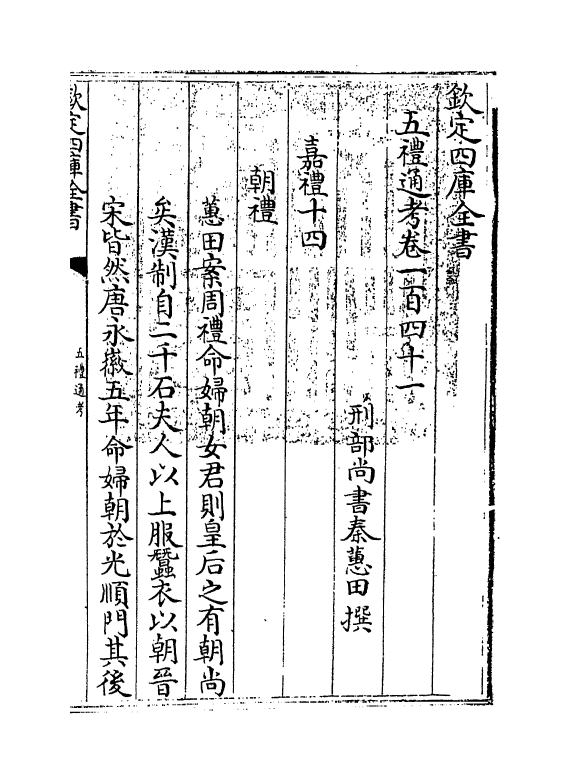 欽定四庫全書
五禮通考卷一百四十一
刑部尚書秦蕙田撰
嘉禮十四
朝禮
蕙田案周禮命婦朝女君則皇后之有朝尚
矣漢制自二千石夫人以上服蠶衣以朝晉
宋皆然唐永徽五年命婦朝於光順門其後
欽定四庫全書
五禮通考